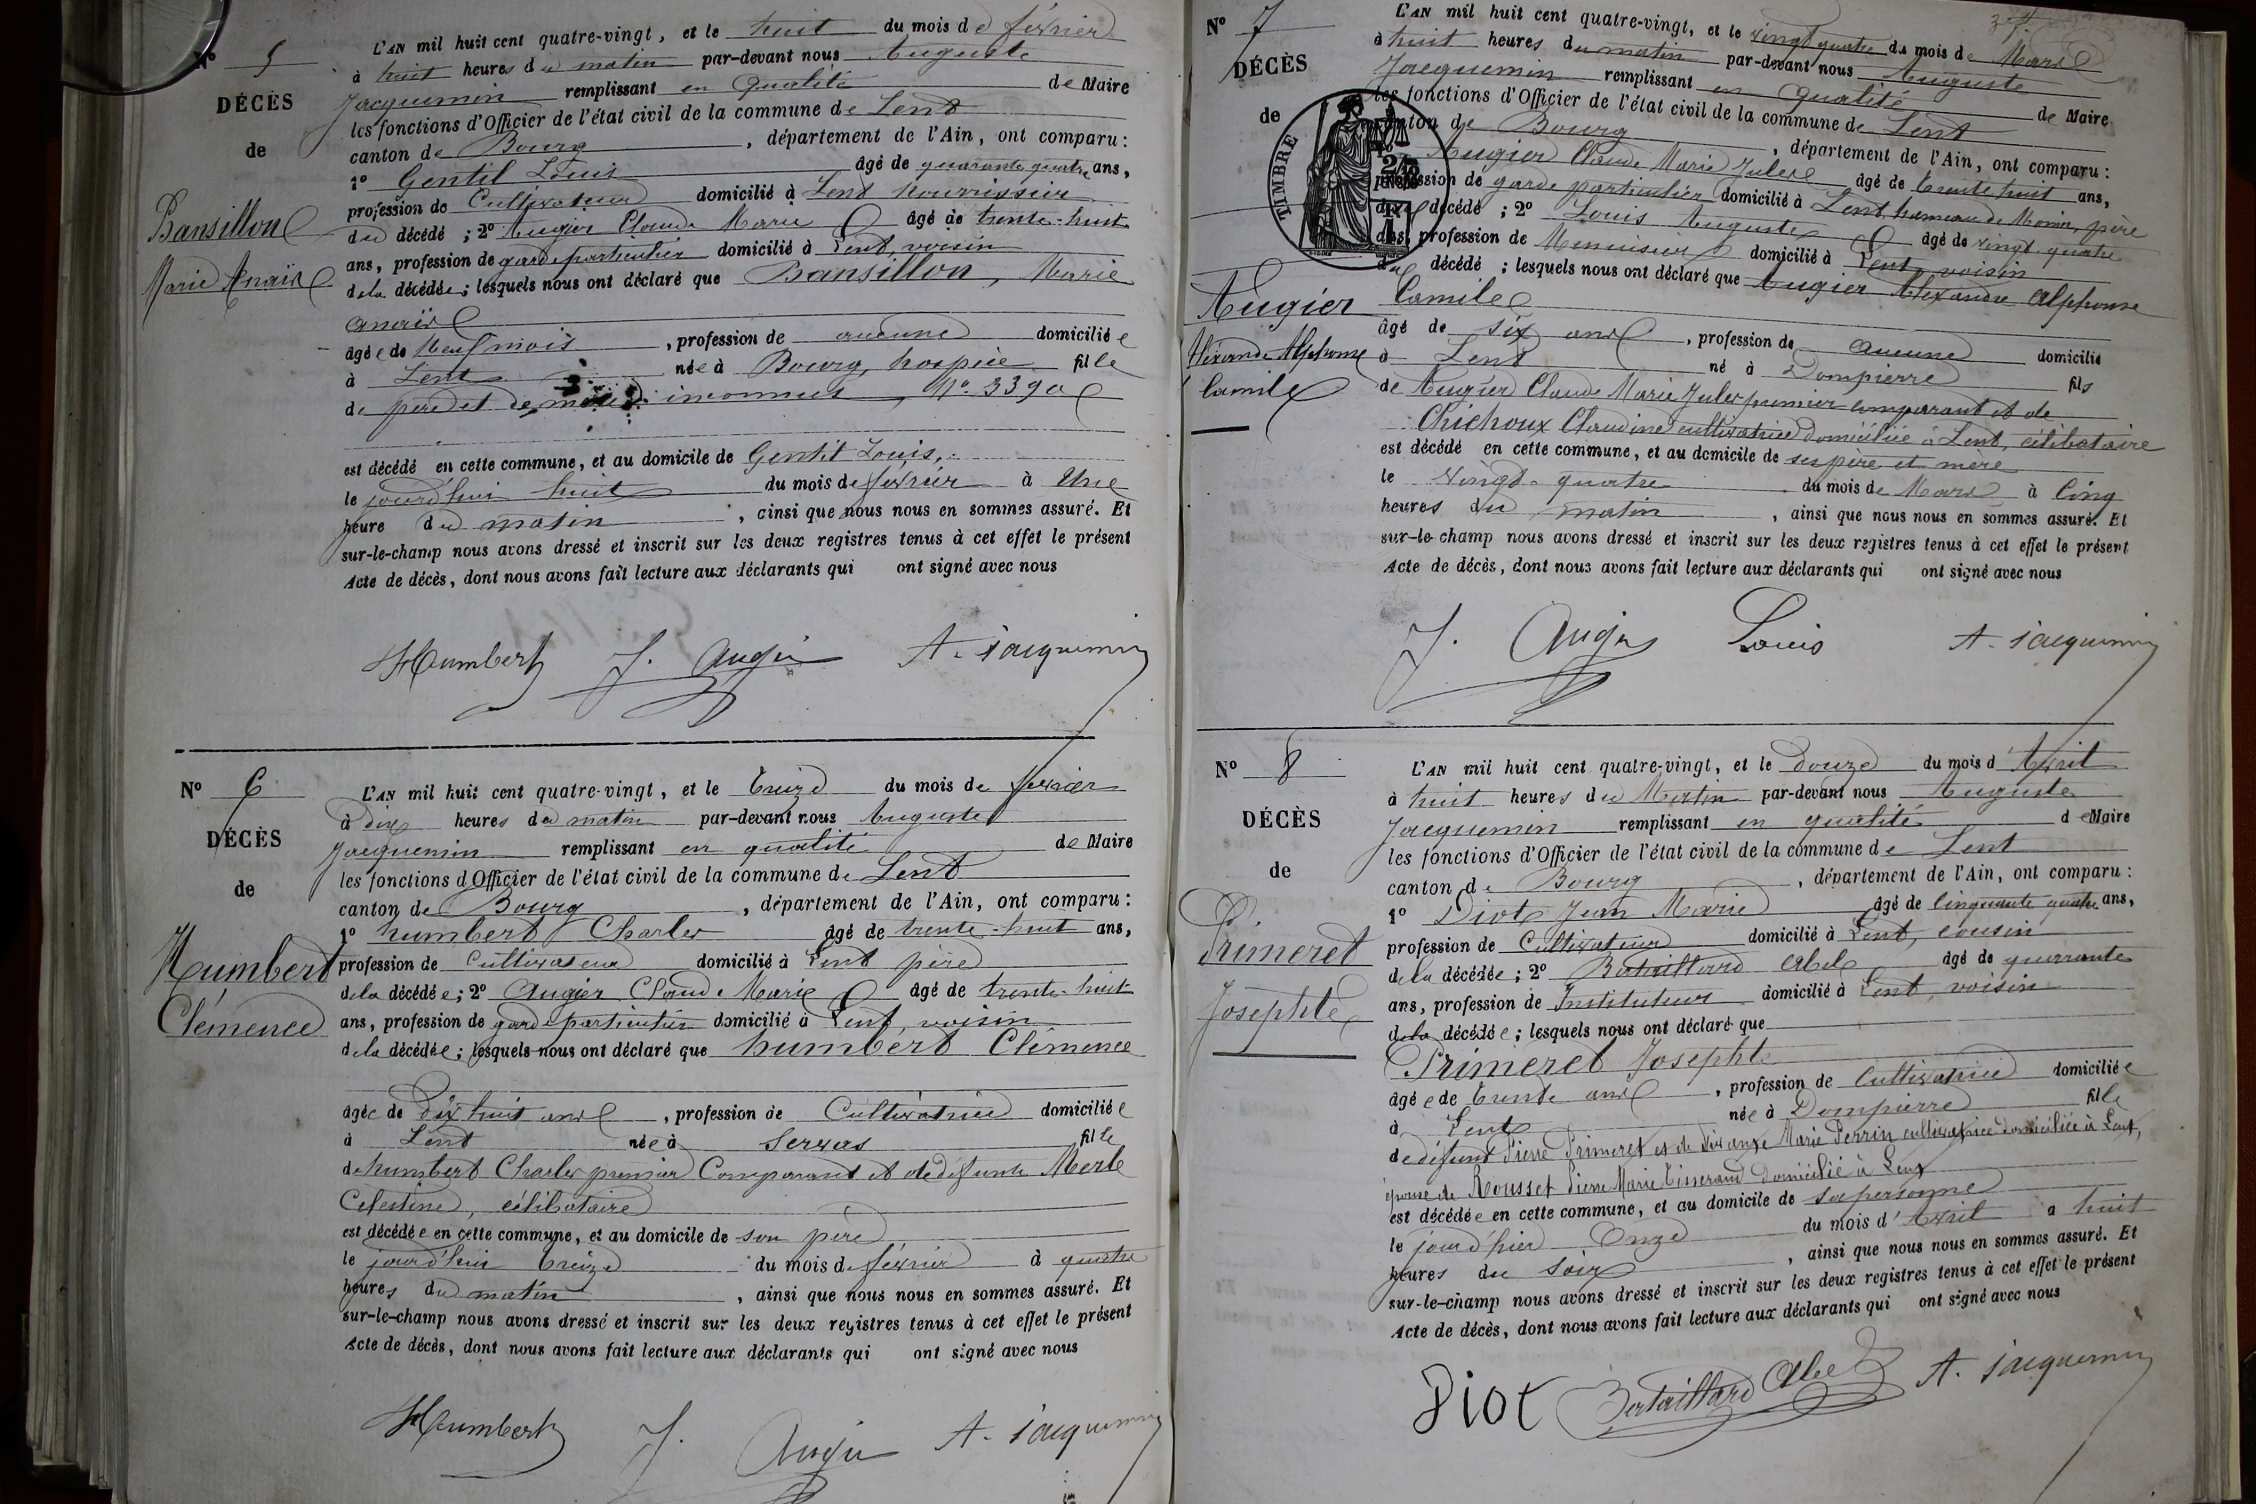 N° 5
DÉCÈS
de
Bansillon
Marie Anaïs
L'AN mil huit cent quatre-vingt, et le huit du mois de février
à huit heures du matin par-devant nous Auguste
Jacquemin remplissant en qualité de Maire
les fonctions d'Officier de l'état civil de la commune de Lent
canton de Bourg, département de l'Ain, ont comparu :
1° Gentil Louis âgé de quarante quatre ans,
profession de Cultivateur domicilié à Lent nourrissier
du décédé ; 2° Augier Claude Marie J. âgé de trente-huit
ans, profession de garde particulier domicilié à Lent, voisin
de la décédée ; lesquels nous ont déclaré que Bansillon, Marie
anaïs
âgée de Neuf mois, profession de aucune domiciliée
à Lent née à Bourg, hospice fille
de père et de mère inconnus, N° 3390
est décédé en cette commune, et au domicile de Gentil Louis,
le jourd'hui huit du mois de février à Une
heure du matin, ainsi que nous nous en sommes assuré. Et
sur-le-champ nous avons dressé et inscrit sur les deux registres tenus à cet effet le présent
Acte de décès, dont nous avons fait lecture aux déclarants qui ont signé avec nous
Humbert J. Augier A. Jacquemin
N° 6
DÉCÈS
de
Humbert
Clémence
L'AN mil huit cent quatre-vingt, et le treize du mois de février
à dix heures du matin par-devant nous Auguste
Jacquemin remplissant en qualité de Maire
les fonctions d'Officier de l'état civil de la commune de Lent
canton de Bourg, département de l'Ain, ont comparu :
1° humbert Charles âgé de trente-huit ans,
profession de Cultivateur domicilié à Lent père
de la décédée ; 2° Augier Claude Marie J. âgé de trente-huit
ans, profession de garde particulier domicilié à Lent, voisin
de la décédée ; lesquels nous ont déclaré que humbert Clémence
âgée de Dix huit ans, profession de Cultivatrice domiciliée
à Lent née à Servas fille
de humbert Charles premier Comparant et de défunte Merle
Celestine, célibataire
est décédée en cette commune, et au domicile de son père
le jourd'hui treize du mois de février à quatre
heures du matin, ainsi que nous nous en sommes assuré. Et
sur-le-champ nous avons dressé et inscrit sur les deux registres tenus à cet effet le présent
Acte de décès, dont nous avons fait lecture aux déclarants qui ont signé avec nous
Humbert J. Augier A. Jacquemin
N° 7
DÉCÈS
de
TIMBRE
Augier
Alexandre Alphonse
Camile
L'AN mil huit cent quatre-vingt, et le vingt quatre du mois de Mars
à huit heures du matin par-devant nous Auguste
Jacquemin remplissant en qualité de Maire
les fonctions d'Officier de l'état civil de la commune de Lent
canton de Bourg, département de l'Ain, ont comparu :
1° Augier Claude Marie Jules âgé de trente huit ans,
profession de garde particulier domicilié à Lent, hameau de Monin, père
du décédé ; 2° Louis Auguste âgé de vingt-quatre
ans, profession de Menuisier domicilié à Lent, voisin
du décédé ; lesquels nous ont déclaré que Augier Alexandre Alphonse
Camile
âgé de six ans, profession de aucune domicilié
à Lent né à Dompierre fils
de Augier Claude Marie Jules premier comparant et de
Chichoux Claudine cultivatrice domiciliée à Lent, célibataire
est décédé en cette commune, et au domicile de ses père et mère
le Vingt-quatre du mois de Mars à Cinq
heures du matin, ainsi que nous nous en sommes assuré. Et
sur-le-champ nous avons dressé et inscrit sur les deux registres tenus à cet effet le présent
Acte de décès, dont nous avons fait lecture aux déclarants qui ont signé avec nous
J. Augier Louis A. Jacquemin
N° 8
DÉCÈS
de
Primeret
Josephte
L'AN mil huit cent quatre-vingt, et le douze du mois d'Avril
à huit heures du Matin par-devant nous Auguste
Jacquemin remplissant en qualité de Maire
les fonctions d'Officier de l'état civil de la commune de Lent
canton de Bourg, département de l'Ain, ont comparu :
1° Diot Jean Marie âgé de Cinquante quatre ans,
profession de Cultivateur domicilié à Lent, cousin
de la décédée ; 2° Bataillard Abel âgé de quarante
ans, profession de Instituteur domicilié à Lent, voisin
de la décédée ; lesquels nous ont déclaré que
Primeret Josephte
âgée de trente ans, profession de Cultivatrice domiciliée
à Lent née à Dompierre fille
de défunt Pierre Primeret et de vivante Marie Perrin cultivatrice domiciliée à Lent,
épouse de Rousset Pierre Marie Tisserand domicilié à Lent
est décédée en cette commune, et au domicile de sa personne
le jour d'hier Onze du mois d'Avril à huit
heures du soir, ainsi que nous nous en sommes assuré. Et
sur-le-champ nous avons dressé et inscrit sur les deux registres tenus à cet effet le présent
Acte de décès, dont nous avons fait lecture aux déclarants qui ont signé avec nous
Diot Bataillard Abel A. Jacquemin